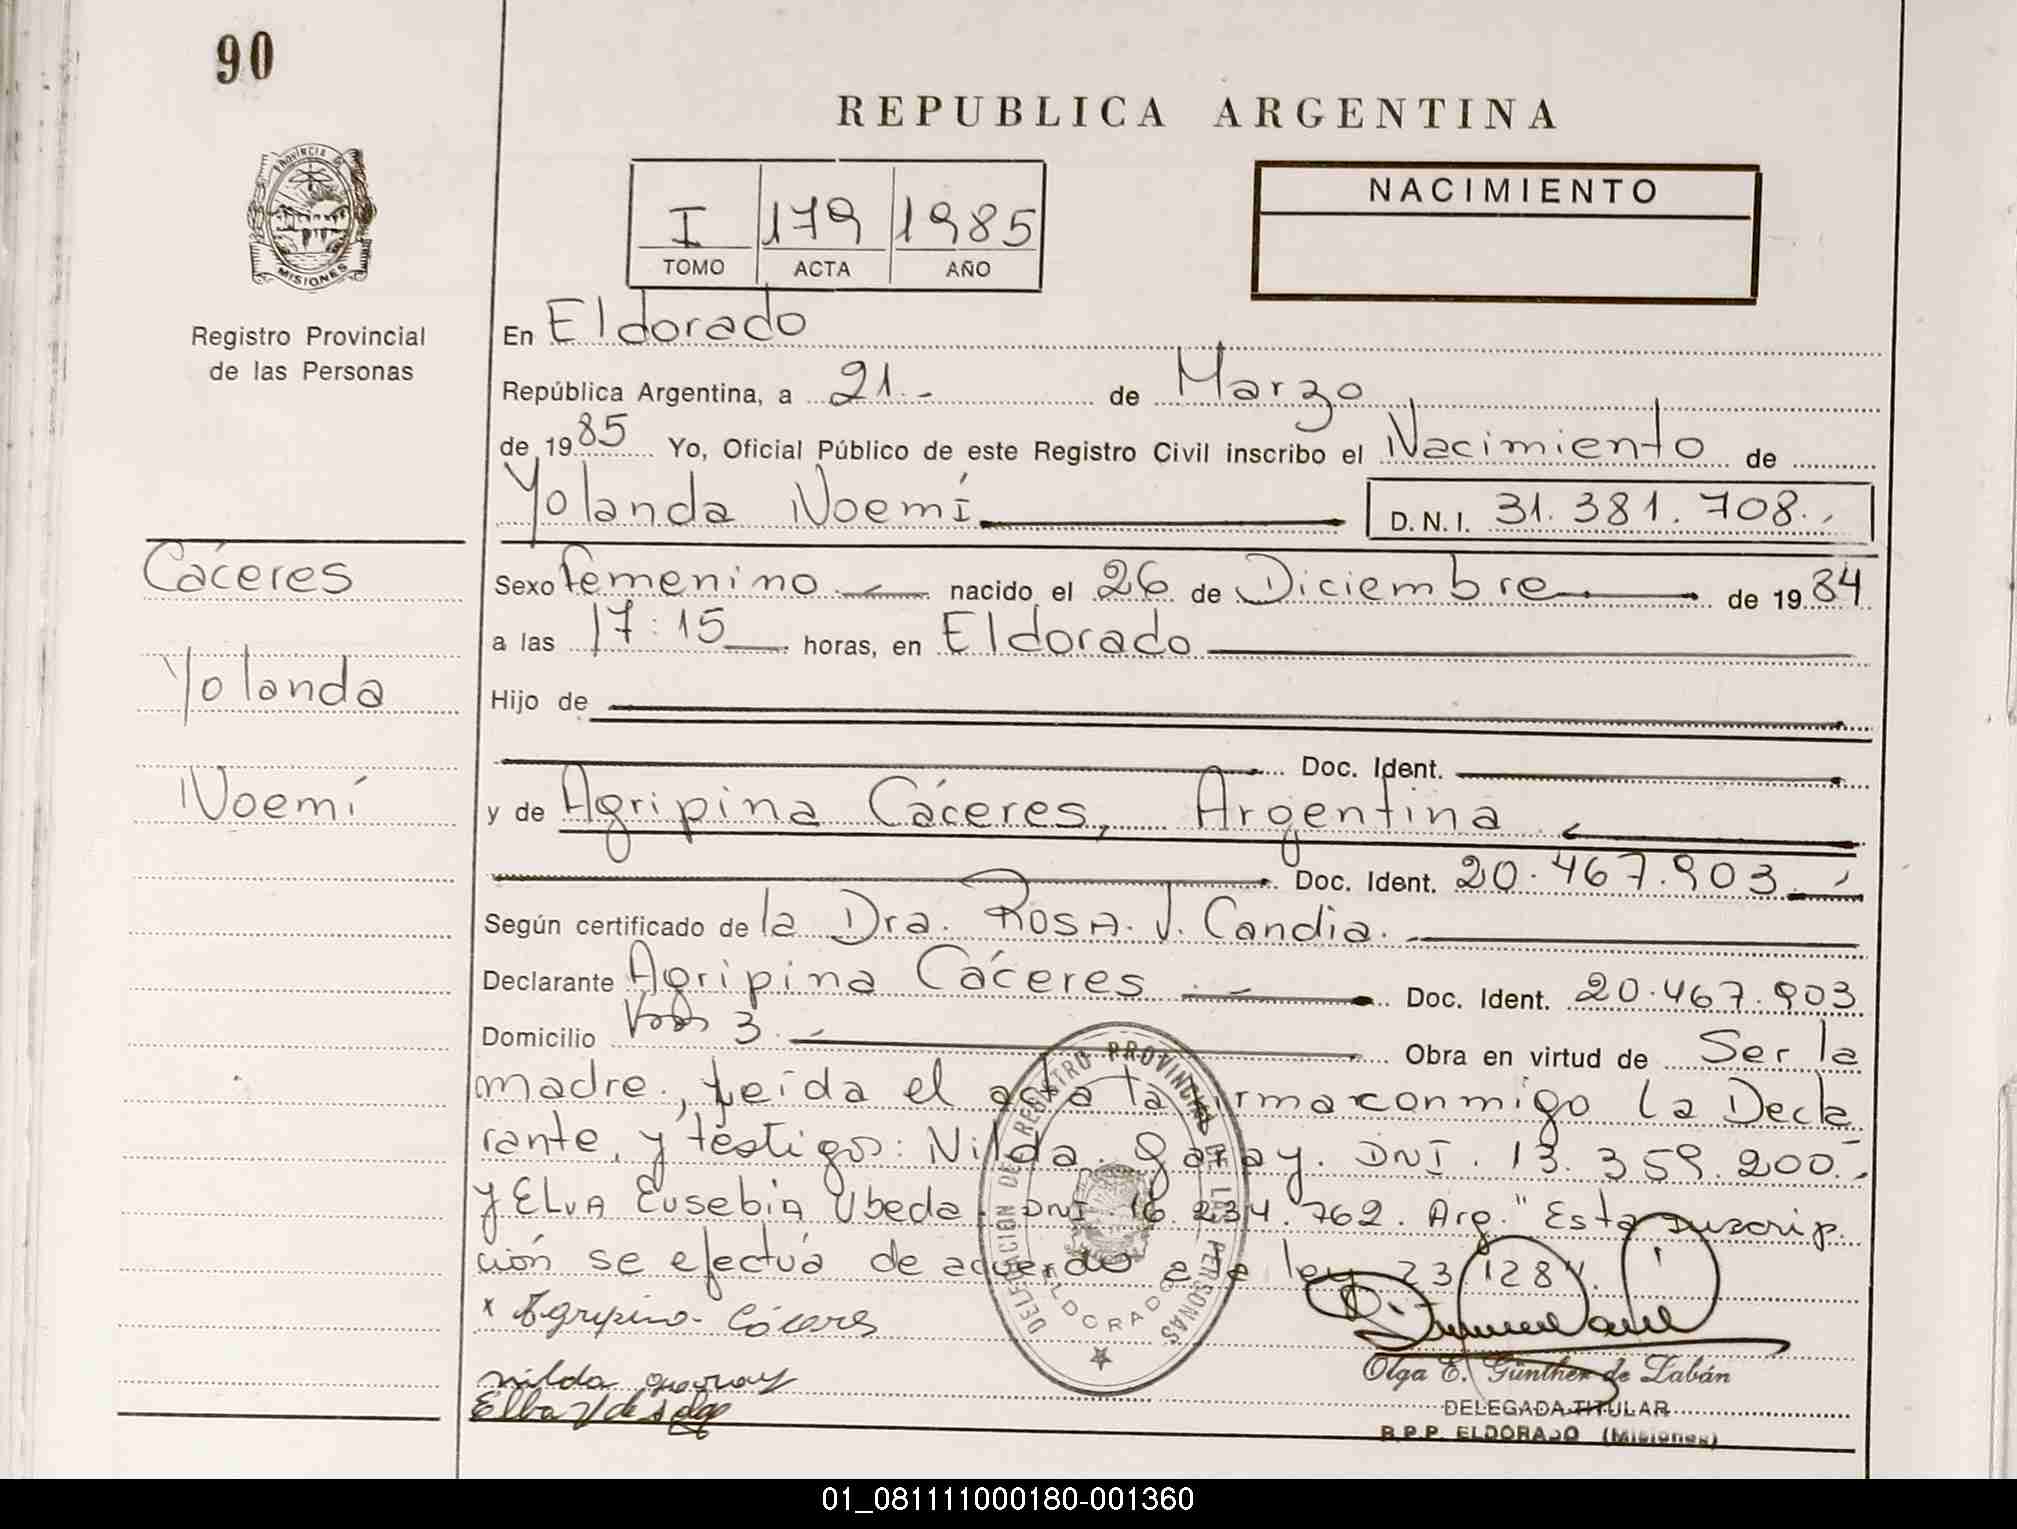 90
REPUBLICA ARGENTINA
PROVINCIA DE
MISIONES
Registro Provincial
de las Personas
I 179 1985
TOMO ACTA AÑO
NACIMIENTO
En Eldorado
República Argentina, a 21.- de Marzo
de 1985 Yo, Oficial Público de este Registro Civil inscribo el Nacimiento de
Yolanda Noemí D.N.I. 31.381.708.-
Cáceres
Yolanda
Noemí
Sexo Femenino nacido el 26 de Diciembre de 1984
a las 17:15 horas, en Eldorado
Hijo de
Doc. Ident.
y de Agripina Cáceres, Argentina
Doc. Ident. 20.467.903.-
Según certificado de la Dra. Rosa. J. Candia.
Declarante Agripina Cáceres Doc. Ident. 20.467.903
Domicilio 3. Obra en virtud de Ser la
madre., Leída el acta la firmarconmigo la Decla
rante, y testigos: Nilda. Garay. DNI. 13.359.200.-
y ELVA Eusebia Ubeda. DNI 16.234.762. Arg. "Esta inscrip.
ción se efectuá de acuerdo a la ley 23.128".
x Agripina Cáceres
DELEGACION DE REGISTRO PROVINCIAL DE LAS PERSONAS
ELDORADO
Nilda Garay
Olga E. Günther de Zabán
DELEGADA TITULAR
R.P.P. ELDORADO (Misiones)
01_081111000180-001360